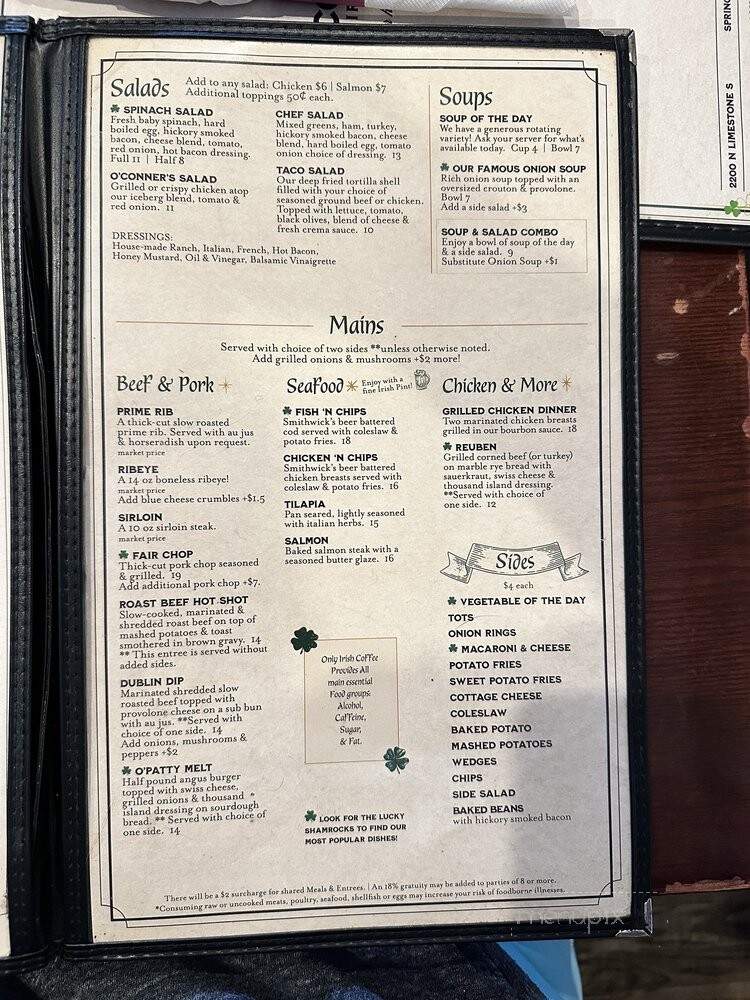 Salads
Add to any salad: Chicken $6 | Salmon $7
Additional toppings 50¢ each.
SPINACH SALAD
Fresh baby spinach, hard
boiled egg, hickory smoked
bacon, cheese blend, tomato,
red onion, hot bacon dressing.
Full 11 | Half 8
O'CONNER'S SALAD
Grilled or crispy chicken atop
our iceberg blend, tomato &
red onion. 11
CHEF SALAD
Mixed greens, ham, turkey,
hickory smoked bacon, cheese
blend, hard boiled egg, tomato
onion choice of dressing. 13
TACO SALAD
Our deep fried tortilla shell
filled with your choice of
seasoned ground beef or chicken.
Topped with lettuce, tomato,
black olives, blend of cheese &
fresh crema sauce. 10
DRESSINGS:
House-made Ranch, Italian, French, Hot Bacon,
Honey Mustard, Oil & Vinegar, Balsamic Vinaigrette
Soups
SOUP OF THE DAY
We have a generous rotating
variety! Ask your server for what's
available today. Cup 4 | Bowl 7
OUR FAMOUS ONION SOUP
Rich onion soup topped with an
oversized crouton & provolone.
Bowl 7
Add a side salad +$3
SOUP & SALAD COMBO
Enjoy a bowl of soup of the day
& a side salad. 9
Substitute Onion Soup +$1
Mains
Served with choice of two sides **unless otherwise noted.
Add grilled onions & mushrooms +$2 more!
Beef & Pork
PRIME RIB
A thick-cut slow roasted
prime rib. Served with au jus
& horseradish upon request.
market price
RIBEYE
A 14 oz boneless ribeye!
market price
Add blue cheese crumbles +$1.5
SIRLOIN
A 10 oz sirloin steak.
market price
FAIR CHOP
Thick-cut pork chop seasoned
& grilled. 19
Add additional pork chop +$7.
ROAST BEEF HOT SHOT
Slow-cooked, marinated &
shredded roast beef on top of
mashed potatoes & toast
smothered in brown gravy. 14
** This entree is served without
added sides.
DUBLIN DIP
Marinated shredded slow
roasted beef topped with
provolone cheese on a sub bun
with au jus. **Served with
choice of one side. 14
Add onions, mushrooms &
peppers +$2
O'PATTY MELT
Half pound angus burger
topped with swiss cheese,
grilled onions & thousand
island dressing on sourdough
bread. ** Served with choice of
one side. 14
Seafood
Enjoy with a
fine Irish Pint!
FISH 'N CHIPS
Smithwick's beer battered
cod served with coleslaw &
potato fries. 18
CHICKEN 'N CHIPS
Smithwick's beer battered
chicken breasts served with
coleslaw & potato fries. 16
TILAPIA
Pan seared, lightly seasoned
with italian herbs. 15
SALMON
Baked salmon steak with a
seasoned butter glaze. 16
Only Irish Coffee
Provides All
main essential
Food groups:
Alcohol,
Caffeine,
Sugar,
& Fat.
LOOK FOR THE LUCKY
SHAMROCKS TO FIND OUR
MOST POPULAR DISHES!
Chicken & More
GRILLED CHICKEN DINNER
Two marinated chicken breasts
grilled in our bourbon sauce. 18
REUBEN
Grilled corned beef (or turkey)
on marble rye bread with
sauerkraut, swiss cheese &
thousand island dressing.
**Served with choice of
one side. 12
Sides
$4 each
VEGETABLE OF THE DAY
TOTS
ONION RINGS
MACARONI & CHEESE
POTATO FRIES
SWEET POTATO FRIES
COTTAGE CHEESE
COLESLAW
BAKED POTATO
MASHED POTATOES
WEDGES
CHIPS
SIDE SALAD
BAKED BEANS
with hickory smoked bacon
There will be a $2 surcharge for shared Meals & Entrees. | An 18% gratuity may be added to parties of 8 or more.
*Consuming raw or uncooked meats, poultry, seafood, shellfish or eggs may increase your risk of foodborne illnesses.
2200 N LIMESTONE S
SPRING
menupix